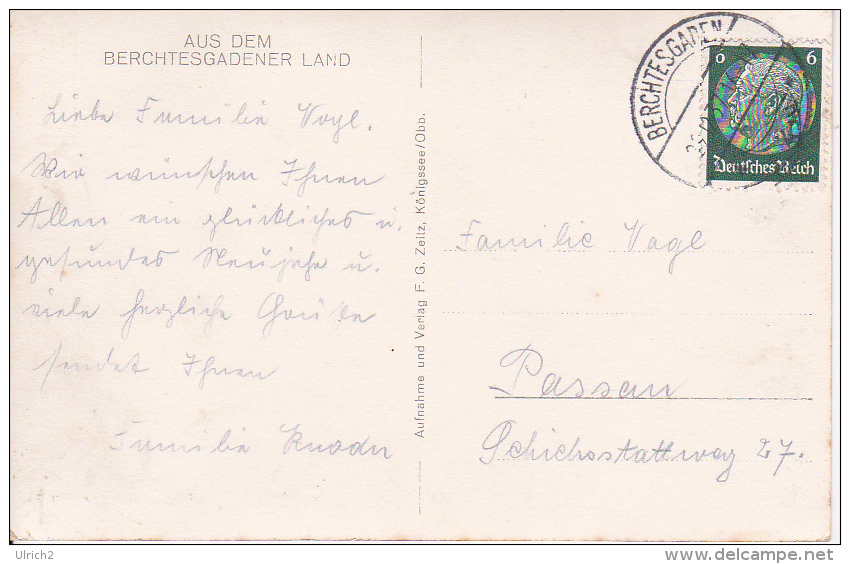 AUS DEM
BERCHTESGADENER LAND
Liebe Familie Vogl.
Wir wünschen Ihnen
Allen ein glückliches u.
gesundes Neujahr u.
viele herzliche Grüße
sendet Ihnen
Familie
Aufnahme und Verlag F. G. Zeitz, Königssee/Obb.
BERCHTESGADEN
6 6
Deutsches Reich
Familie Vogl
Passau
Schichstattweg 27.
Ulrich2
delcampe.net